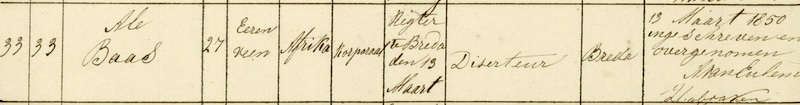 33 33 Ale Baas 27 Eeren veen Afrika Korporaal Regter te Breda den 13 Maart Diserteur Breda 13 Maart 1850
ingeschreven en
overgenomen